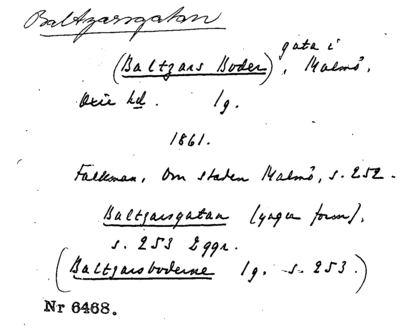 Baltzarsgatan
(Baltzars Boder), gata i Malmö,
Oxie hd. lg.
1861.
Falkman, Om staden Malmö, s. 252.
Baltzarsgatan (yngre form),
s. 253
(Baltzarsboderne lg. s. 253.)
Nr 6468.